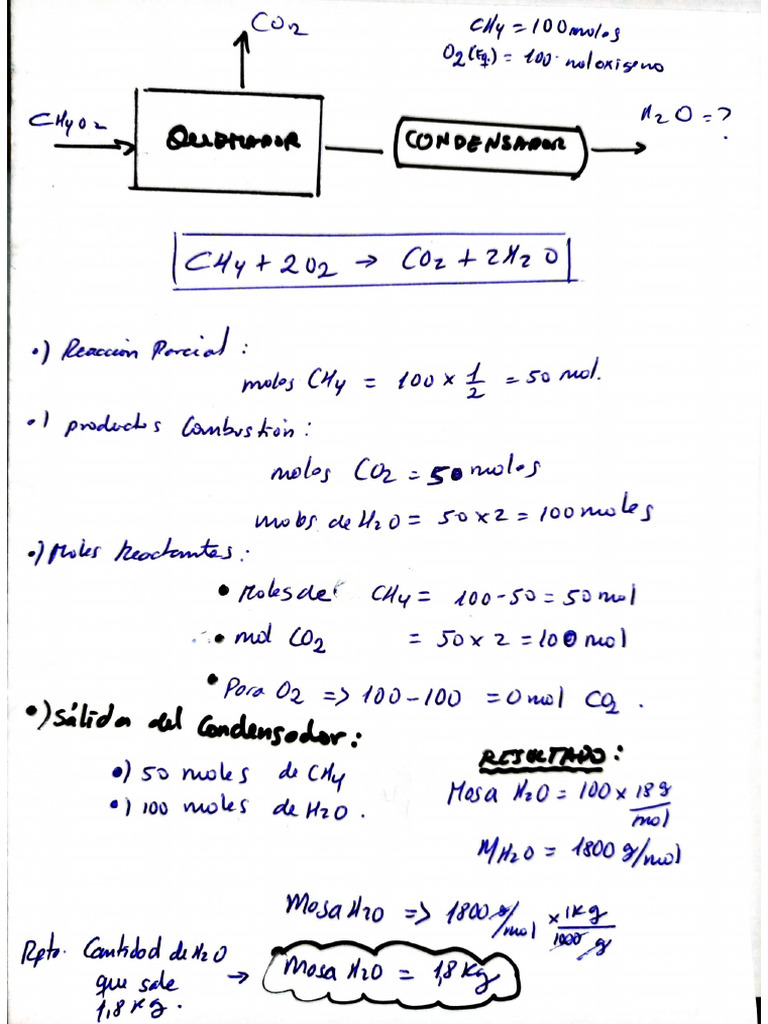 CO2
CH4 = 100 moles
O2(Eq.) = 100 mol oxigeno
CH4O2
QUEMADOR
CONDENSADOR
H2O = ?
CH4 + 2O2 → CO2 + 2H2O
•) Reacción Parcial :
moles CH4 = 100 × 1/2 = 50 mol.
•) productos Combustión :
moles CO2 = 50 moles
moles de H2O = 50 × 2 = 100 moles
•) Moles Reactantes :
• Moles de CH4 = 100 - 50 = 50 mol
• mol CO2 = 50 × 2 = 100 mol
• Para O2 => 100 - 100 = 0 mol CO2 .
•) Sálida del Condensador :
•) 50 moles de CH4
•) 100 moles de H2O .
RESULTADO :
Masa H2O = 100 × 18 g/mol
MH2O = 1800 g/mol
Masa H2O => 1800 g/mol × 1Kg/1000 g
Rpta. Cantidad de H2O
que sale
1,8 Kg .
→ Masa H2O = 1,8 Kg